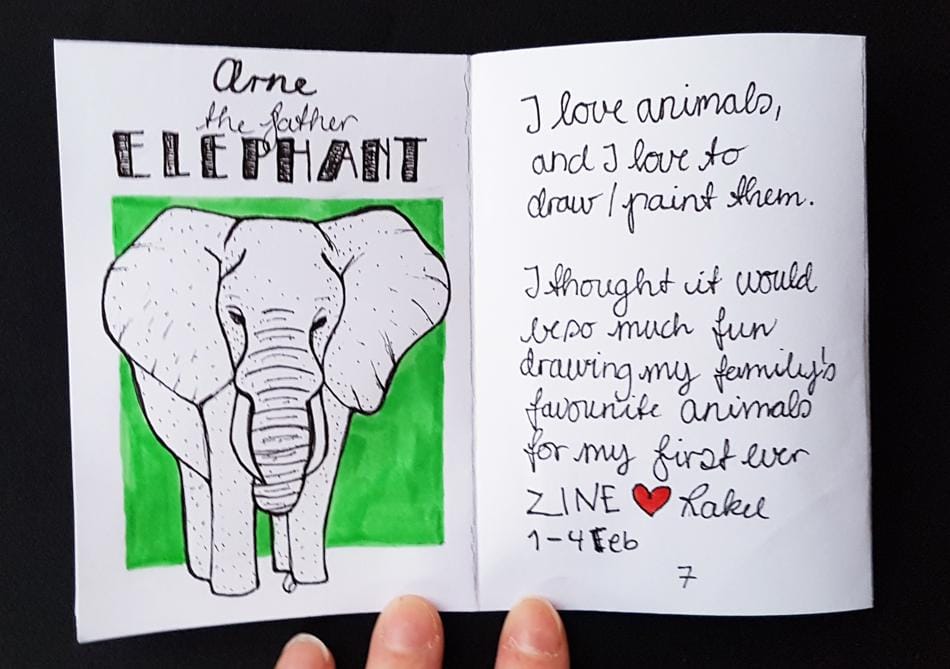 Arne
the father
ELEPHANT
I love animals,
and I love to
draw/paint them.
I thought it would
be so much fun
drawing my family's
favourite animals
for my first ever
ZINE ❤ Rakel
1-4 Feb
7